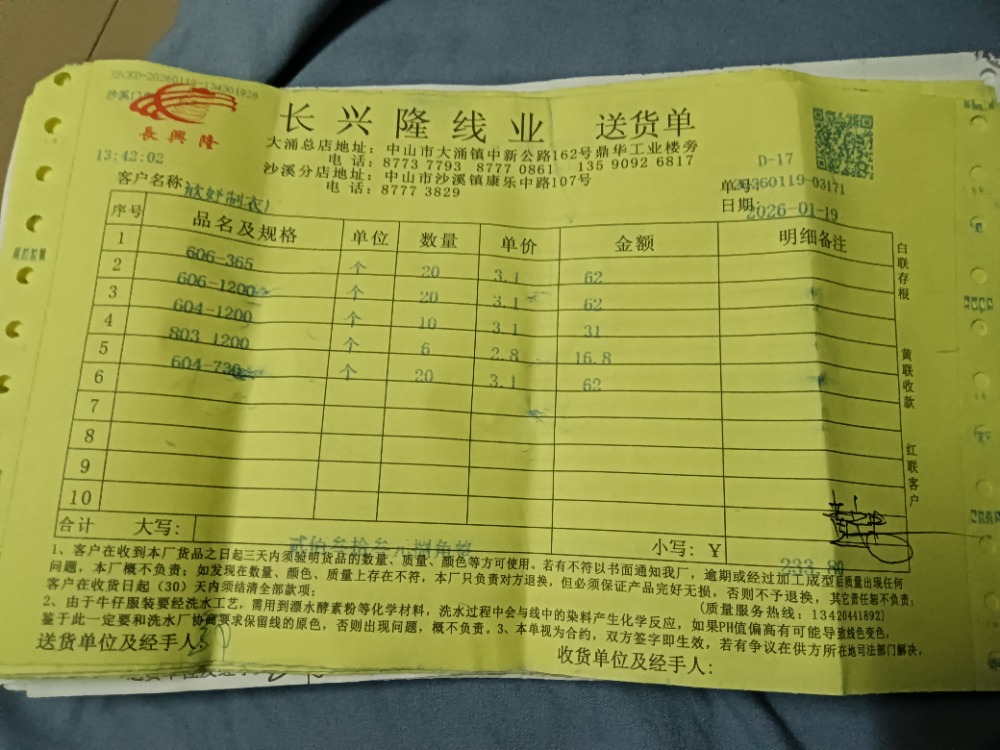 XSCKD-20260119-134301928
沙溪门
長興隆
长兴隆线业 送货单
大涌总店地址：中山市大涌镇中新公路162号鼎华工业楼旁
电话：8773 7793 8777 0861 135 9092 6817
沙溪分店地址：中山市沙溪镇康乐中路107号
电话：8777 3829
13:42:02
D-17
单号：20260119-03171
日期：2026-01-19
客户名称 欣妤制衣厂
序号 品名及规格 单位 数量 单价 金额 明细备注
1 606-365 个 20 3.1 62
2 606-1200 个 20 3.1 62
3 604-1200 个 10 3.1 31
4 803 1200 个 6 2.8 16.8
5 604-730 个 20 3.1 62
6
7
8
9
10
合计 大写： 贰佰叁拾叁元捌角整 小写：￥ 233.80
白联存根
黄联收款
红联客户
1、客户在收到本厂货品之日起三天内须验明货品的数量、质量、颜色等方可使用。若有不符以书面通知我厂，逾期或经过加工成型后质量出现任何
问题，本厂概不负责；如发现在数量、颜色、质量上存在不符，本厂只负责对方退换，但必须保证产品完好无损，否则不予退换，其它责任恕不负责；
客户在收货日起（30）天内须结清全部款项；
（质量服务热线：13420441892）
2、由于牛仔服装要经洗水工艺，需用到漂水酵素粉等化学材料，洗水过程中会与线中的染料产生化学反应，如果PH值偏高有可能导致线色变色，
鉴于此一定要和洗水厂协商要求保留线的原色，否则出现问题，概不负责。3、本单视为合约，双方签字即生效，若有争议在供方所在地司法部门解决，
送货单位及经手人：
收货单位及经手人：